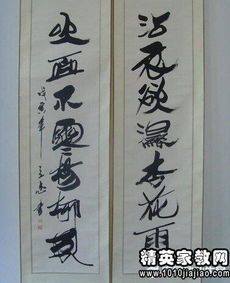 沾衣欲濕杏花雨
吹面不寒楊柳風
精英家教网
www.1010jiajiao.com